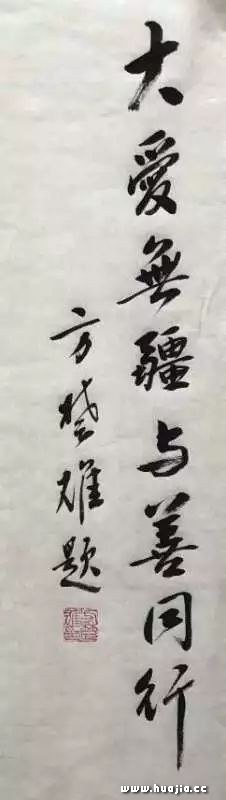 大愛無疆与善同行
方楚雄題
www.huajia.cc